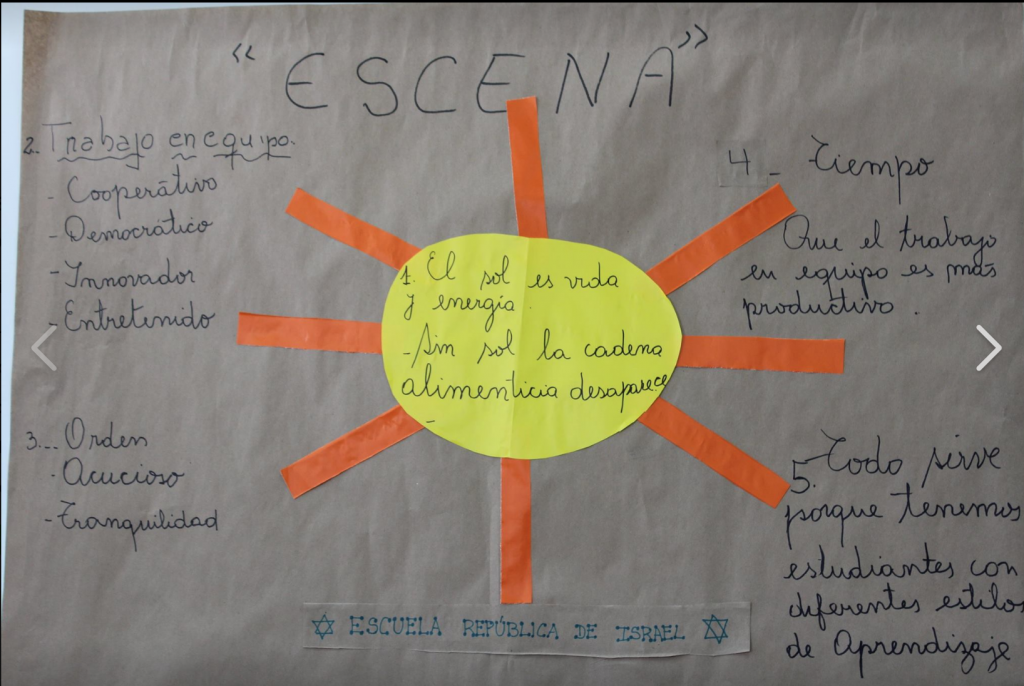 “ESCENA”
1. El sol es vida
y energía.
- Sin sol la cadena
alimenticia desaparece
-
2. Trabajo en equipo.
- Cooperátivo
- Democrático
- Innovador
- Entretenido
3... Orden
- Acucioso
- Tranquilidad
4 - Tiempo
Que el trabajo
en equipo es más
productivo.
5. Todo sirve
porque tenemos
estudiantes con
diferentes estilos
de Aprendizaje
ESCUELA REPÚBLICA DE ISRAEL